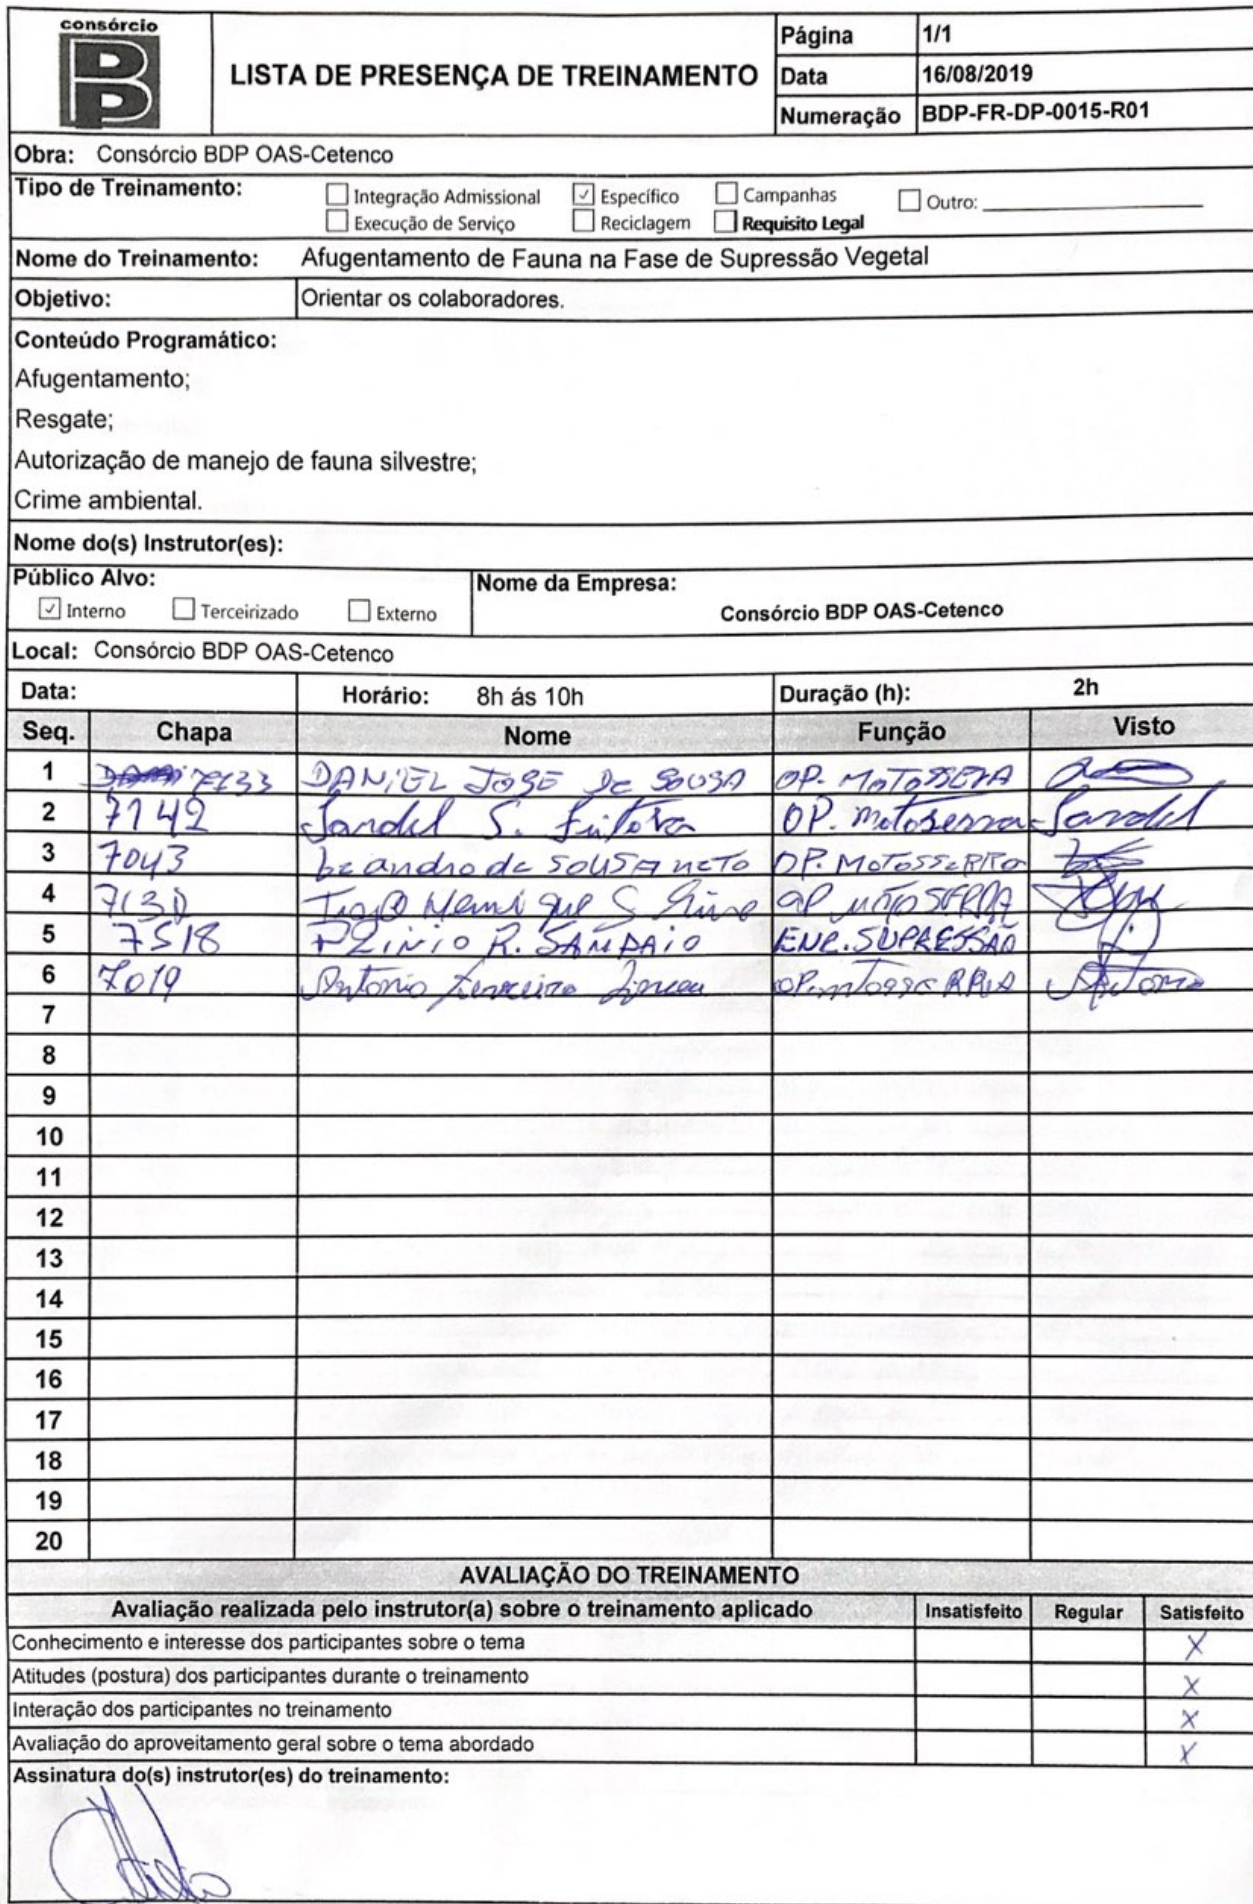 consórcio
BDP
LISTA DE PRESENÇA DE TREINAMENTO
Página 1/1
Data 16/08/2019
Numeração BDP-FR-DP-0015-R01
Obra: Consórcio BDP OAS-Cetenco
Tipo de Treinamento: Integração Admissional ✓ Específico Campanhas Outro:
Execução de Serviço Reciclagem Requisito Legal
Nome do Treinamento: Afugentamento de Fauna na Fase de Supressão Vegetal
Objetivo: Orientar os colaboradores.
Conteúdo Programático:
Afugentamento;
Resgate;
Autorização de manejo de fauna silvestre;
Crime ambiental.
Nome do(s) Instrutor(es):
Público Alvo: Nome da Empresa:
✓ Interno Terceirizado Externo Consórcio BDP OAS-Cetenco
Local: Consórcio BDP OAS-Cetenco
Data: Horário: 8h ás 10h Duração (h): 2h
Seq. Chapa Nome Função Visto
1 7133 DANIEL JOSE De SOUSA OP.
2 7142 S. OP. motoserra Sandel
3 7043 Leandro de SOUSA neto OP.
4 7130 Henrique S OP
5 7518 PLINIO R. SAMPAIO ENC. SUPRESSÃO
6 7019 Antonio Antonio
7
8
9
10
11
12
13
14
15
16
17
18
19
20
AVALIAÇÃO DO TREINAMENTO
Avaliação realizada pelo instrutor(a) sobre o treinamento aplicado Insatisfeito Regular Satisfeito
Conhecimento e interesse dos participantes sobre o tema X
Atitudes (postura) dos participantes durante o treinamento X
Interação dos participantes no treinamento X
Avaliação do aproveitamento geral sobre o tema abordado X
Assinatura do(s) instrutor(es) do treinamento: